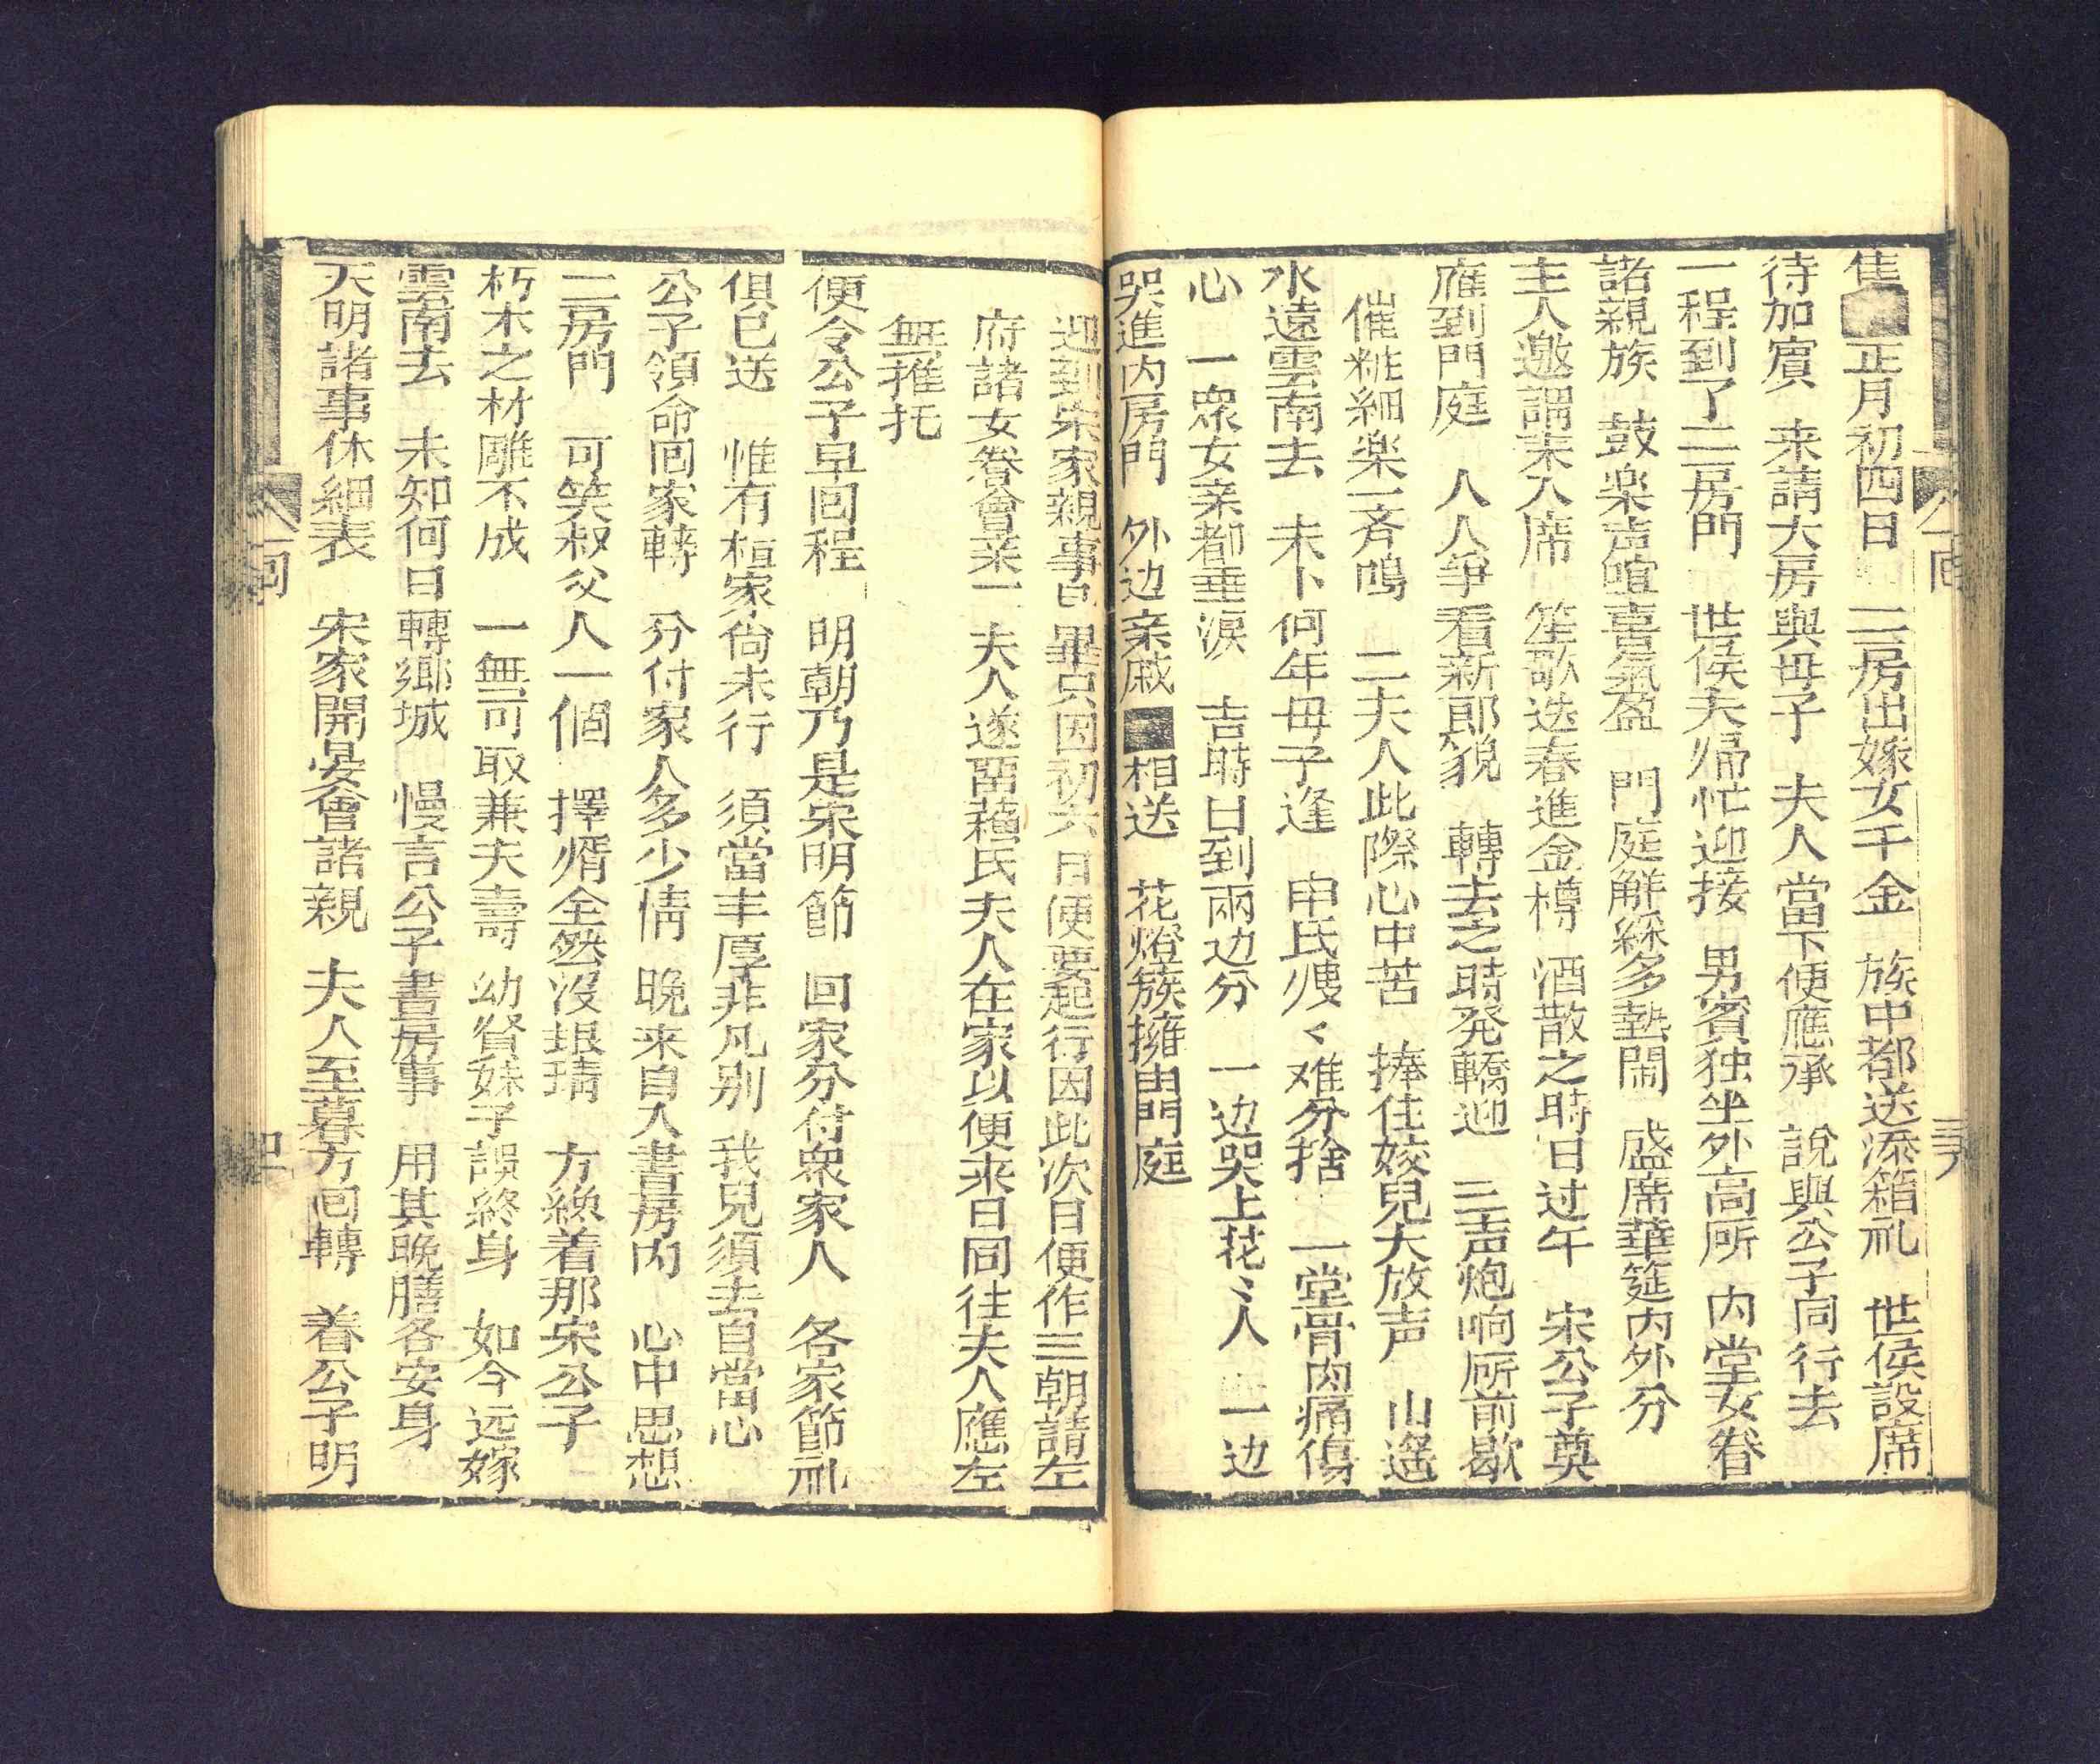 隻 正月初四日 二房出嫁女千金 族中都送添箱礼 世侯設席
待加賓 来請大房與母子 夫人當下便應承 說與公子同行去
一程到了二房門 世侯夫婦忙迎接 男賓独坐外高所 内堂女眷
諸親族 鼓楽声喧喜氣盈 門庭鮮綵多熱鬧 盛席華筵内外分
主人邀謂来入席 笙歌迭春進金樽 酒散之時日过午 宋公子奠
雁到門庭 人人爭看新郎貌 轉去之時発轎迎 三声炮响所前歇
催粧細楽一斉鳴 二夫人此際心中苦 捧住姣兒大放声 山遙
水遠雲南去 未卜何年母子逢 申氏㛐々难分捨 一堂骨肉痛傷
心 一衆女亲都垂淚 吉時日到兩边分 一边哭上花〻人 一边
哭進内房門 外边亲戚 相送 花燈簇擁出門庭
迎到宋家親事已畢只因初六日便要起行因此次日便作三朝請左
府諸女眷會亲一 夫人遂畱穐氏夫人在家以便来日同往夫人應左
無推托
便令公子早回程 明朝乃是宋明節 回家分付衆家人 各家節礼
俱已送 惟有桓家尙未行 須當丰厚非凡别 我兒須去自當心
公子領命回家轉 分付家人多少情 晚来自入書房内 心中思想
二房門 可笑叔父人一個 擇壻全然沒眼睛 方纔着那宋公子
朽木之材雕不成 一無可取兼夭壽 幼賢妹子誤終身 如今远嫁
雲南去 未知何日轉鄉城 慢言公子書房事 用其晚膳各安身
天明諸事休細表 宋家開晏會諸親 夫人至暮方回轉 着公子明